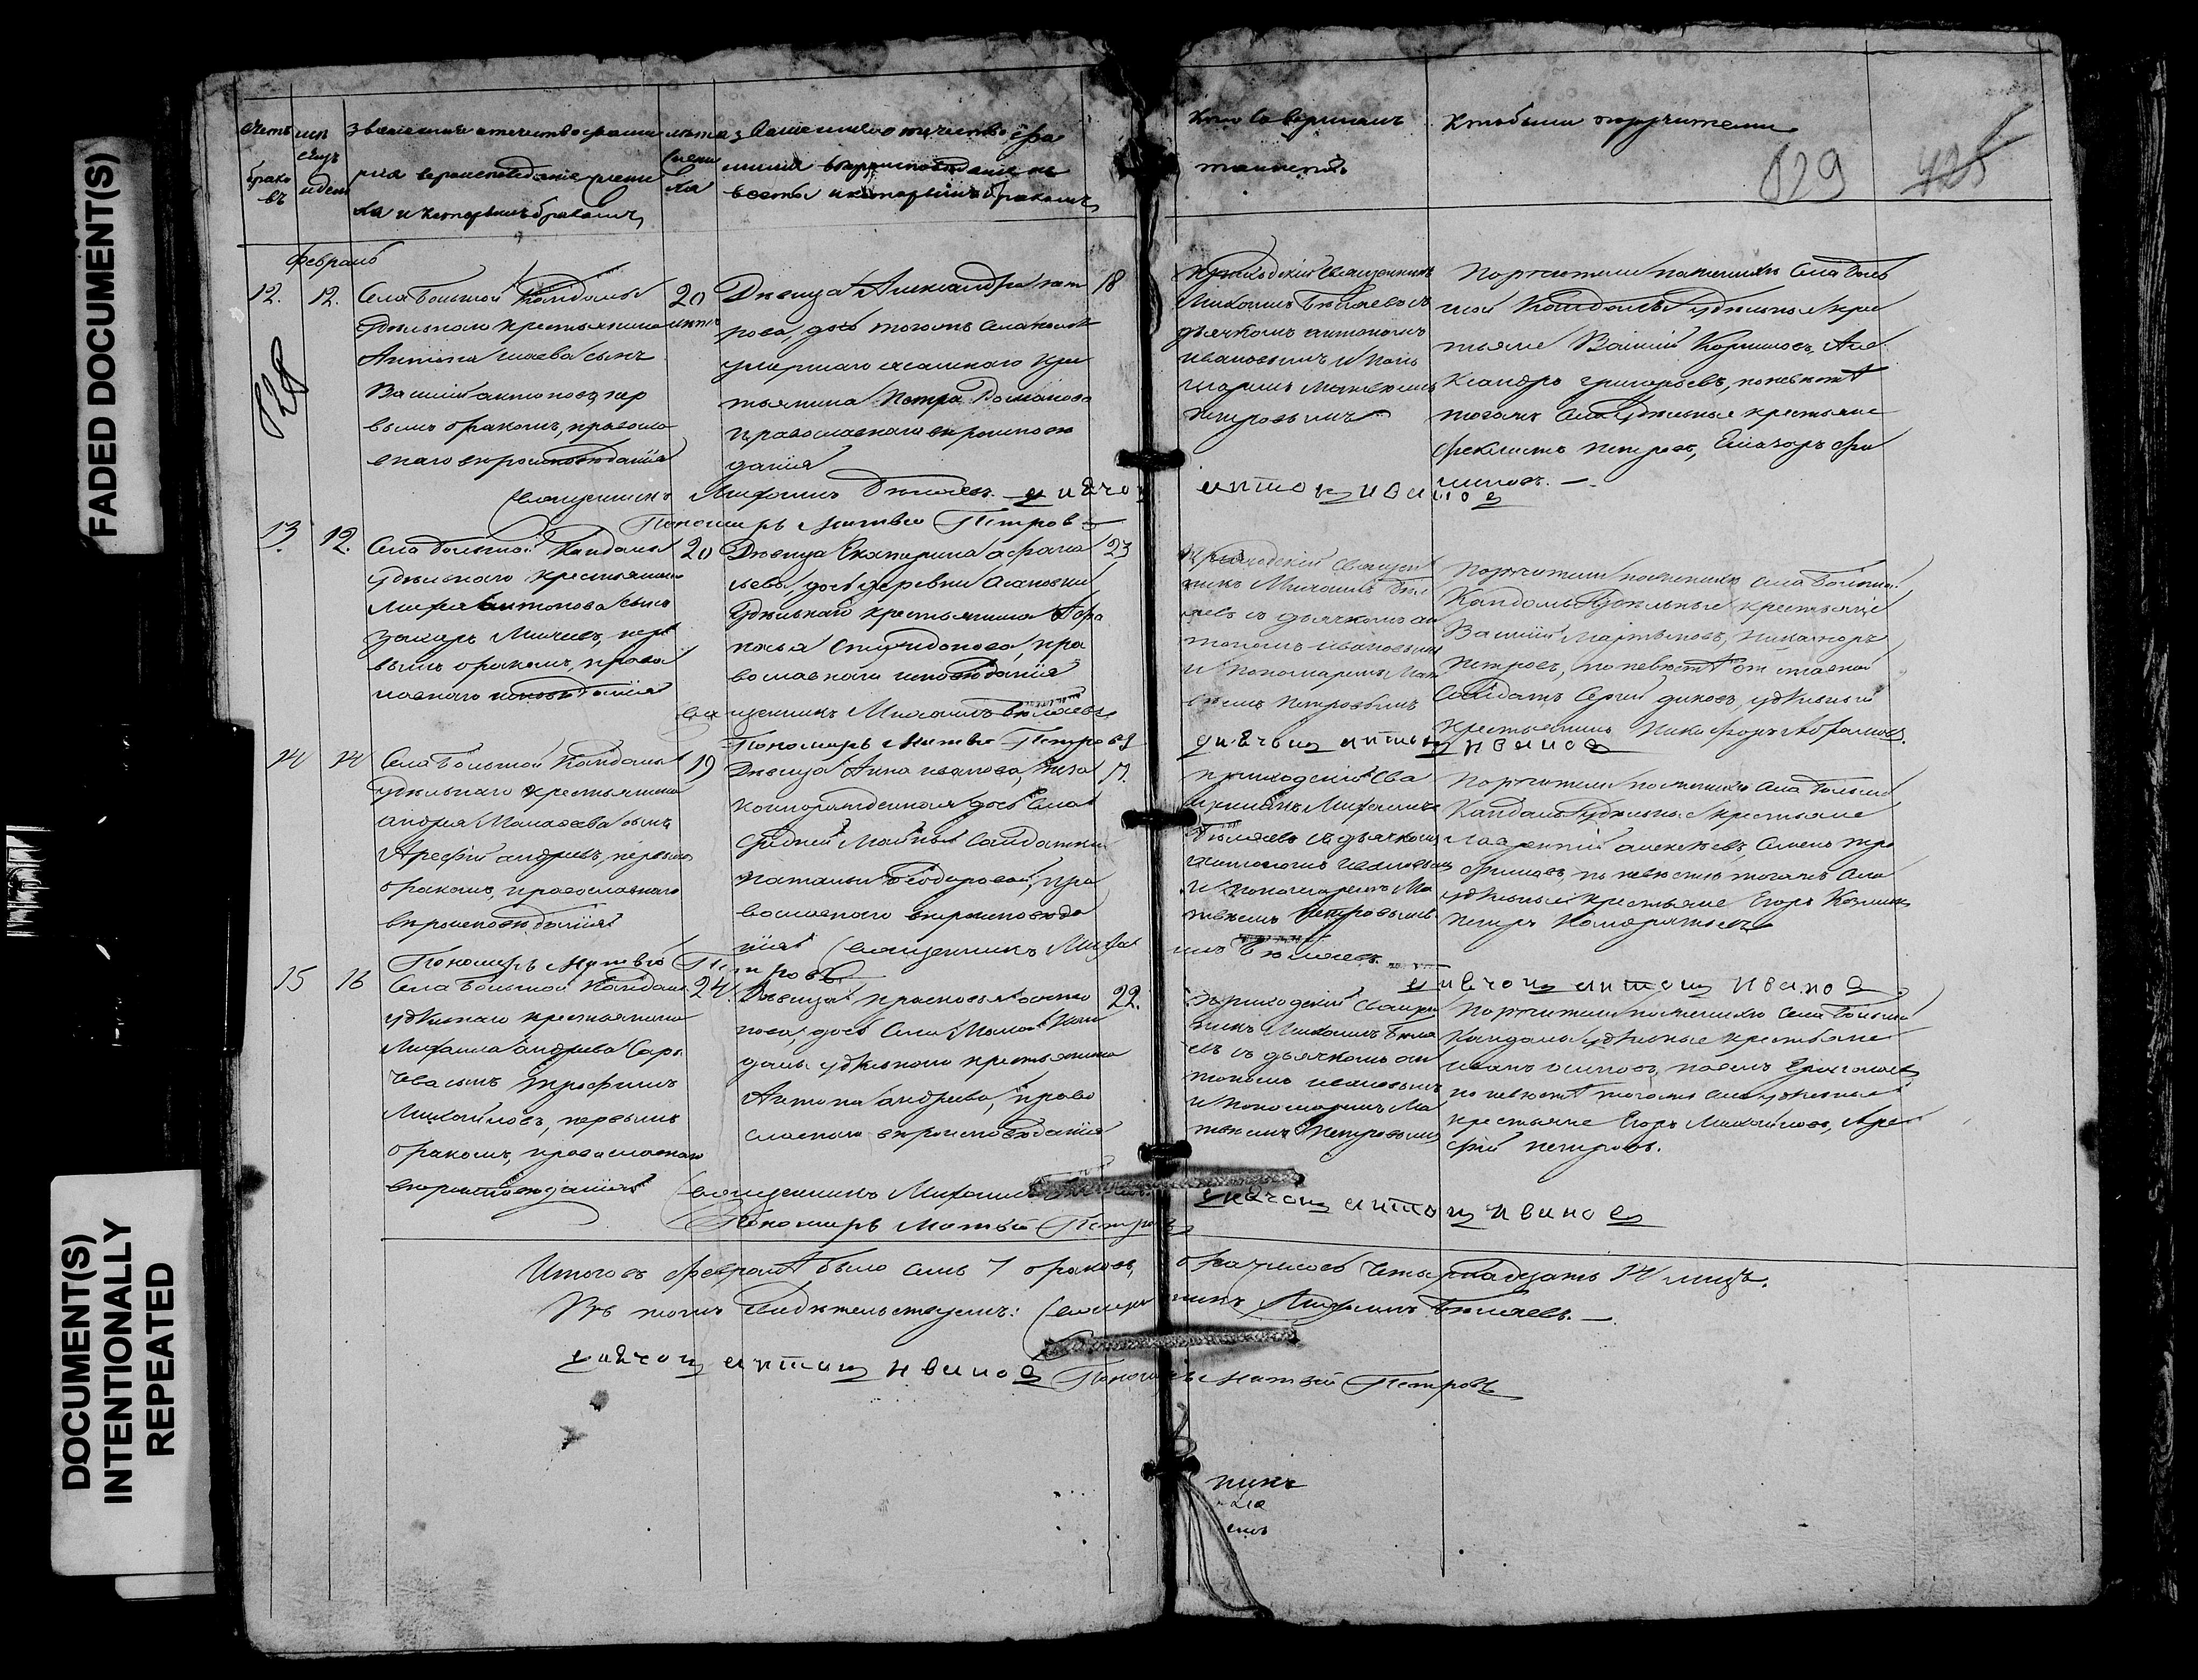 FADED DOCUMENT(S)
DOCUMENT(S)
INTENTIONALLY
REPEATED
счетъ
брако
въ
званіе имя отечество фами
лія вероисповѣданіе жени
ха и которымъ бракомъ
лѣта
жени
ха
званіе имя отечество фа
милія вѣроисповѣданіе не
весты и которымъ бракомъ
кто совершалъ
таинство
кто были поручители
629
425
февраль
12.
12.
Села Большой Кандалы
удѣльнаго крестьянина
Антипа сынъ
Василій антиповъ, пер
вымъ бракомъ, правосла
внаго вѣроисповѣданія
20
лѣтъ
Дѣвица Александра пет
рова, дочь тогожъ села
умершаго крес
тьянина Петра Романова
православнаго вѣроисповѣ
данія
18
приходскій священникъ
Михаилъ Бѣляевъ съ
дьячкомъ антономъ
ивановымъ и поно
маремъ матвѣемъ
петровымъ
Поручители по женихѣ Села боль
шой Кандалы удѣльные крес
тьяне Василій Але
ксандръ григорьевъ, по невѣстѣ
тогожъ села удѣльные крестьяне
феклистъ петровъ,
Священникъ Михаилъ Бѣляевъ. дьячокъ антонъ ивановъ
Пономарь Матвей Петровъ
13.
12.
Села большой Кандалы
удѣльнаго крестьянина
антонова сынъ
захаръ пер
вымъ бракомъ, право
славнаго исповѣданія
20
Дѣвица Екатерина афана
сьева, дочь деревни
удѣльнаго крестьянина Афа
насья Спиридонова, пра
вославнаго исповѣданія
23
приходскій священ
никъ Михаилъ Бѣл
яевъ съ дьячкомъ ан
тономъ ивановымъ
и пономаремъ Мат
вѣемъ петровымъ
Поручители по женихѣ села большой
Кандалы удѣльные крестьяне
Василій Мартыновъ, никаноръ
петровъ, по невѣстѣ отставной
Солдатъ Сергей удѣльный
крестьянинъ Никифоръ Абрамовъ.
Священникъ Михаилъ Бѣляевъ
Пономарь Матвей Петровъ дьячокъ антонъ ивановъ
14
14
Села большой Кандалы
удѣльнаго крестьянина
андрея сынъ
Арефій андреевъ, первымъ
бракомъ, православнаго
вѣроисповѣданія
19
Дѣвица Анна иванова, неза
коннорожденная дочь села
Средней Майны Солдатки
натальи Ѳеодоровой, пра
вославнаго вѣроисповѣда
нія
17.
приходскій свя
щенникъ Михаилъ
Бѣляевъ съ дьячкомъ
антономъ ивановымъ
и пономаремъ Ма
твѣемъ петровымъ
Поручители по женихѣ села большой
Кандалы удѣльные крестьяне
Лаврентій алексѣевъ, Семенъ тро
фимовъ, по невѣстѣ тогожъ села
удѣльные крестьяне Егоръ Козминъ
петръ Кондратьевъ
Священникъ Михаилъ Бѣляевъ
Пономарь Матвей Петровъ
дьячокъ антонъ ивановъ
15
16
Села большой Кандалы
удѣльнаго крестьянина
Михаила андреева
сынъ трофимъ
Михайловъ, первымъ
бракомъ, православнаго
вѣроисповѣданія
24.
Дѣвица прасковья анто
нова, дочь села Малой Кан
далы удѣльнаго крестьянина
Антона андреева, право
славнаго вѣроисповѣданія
22.
приходскій священ
никъ Михаилъ Бѣля
евъ съ дьячкомъ ан
тономъ ивановымъ
и пономаремъ Ма
твѣемъ петровымъ
Поручители по женихѣ села большой
Кандалы удѣльные крестьяне
иванъ осиповъ,
по невѣстѣ тогожъ села удѣльные
крестьяне Егоръ Михайловъ, Аре
фій петровъ.
Священникъ Михаилъ
Пономарь Матвей Петровъ
дьячокъ антонъ ивановъ
Итого въ февралѣ было семь 7 браковъ, брачилось четырнадцать 14 лицъ.
Въ томъ свидѣтельствуемъ: Священникъ Михаилъ Бѣляевъ.
дьячокъ антонъ ивановъ Пономарь Матвей Петровъ
никъ